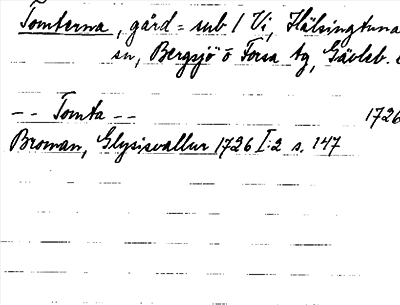 Tomterna, gård = sub 1 Vi, Hälsingtuna
sn, Bergsjö o Forsa tg, Gävleb.
-- Tomta -- 1726
Broman, Glysisvallur 1726 I:2 s, 147